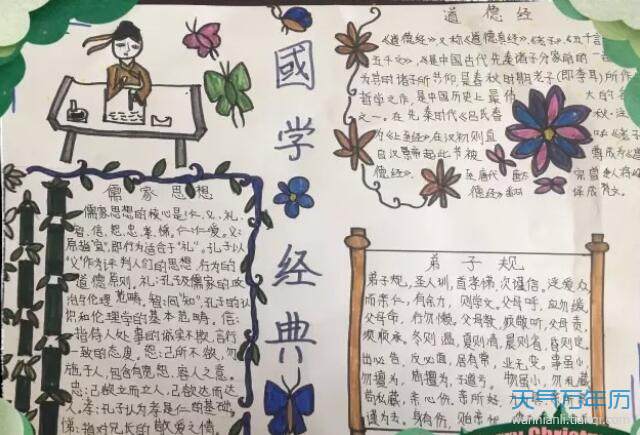 國学经典
道德经
《道德经》,又称《道德真经》、《老子》、《五千言》、《老子
五千文》,是中国古代先秦诸子分家前的一
为其时诸子所共仰,是春秋时期老子(即李耳)所作
哲学之作,是中国历史上最伟大的名
之一。在先秦时代《吕氏春秋·注
为《上至经》,在汉初则直
自汉景帝起此书被尊成为
德经》。至唐代 唐太宗曾令人将
德经》翻译成梵文。
儒家思想
儒家思想的核心是:仁、义、礼、
智、信、恕、忠、孝、悌。仁:仁爱。义:
原指"宜",即行为适合于"礼"。孔子以
"义"作为评判人们的思想、行为的
道德原则。礼:孔子及儒家的政
治与伦理范畴。智:同"知",孔子的认
识和伦理学的基本范畴。信:
指待人处事的诚实不欺,言行
一致的态度。恕:己所不欲,勿
施于人,包含有宽恕、容人之意。
忠:己欲立而立人,己欲达而达
人。孝:孔子认为孝是仁的基础。
悌:指对兄长的敬爱之情
弟子规
弟子规,圣人训,首孝悌,次谨信,泛爱众
而亲仁,有余力,则学文。父母呼,应勿缓
父母命,行勿懒。父母教,须敬听,父母责,
须顺承。冬则温,夏则凊,晨则省,昏则定。
出必告 反必面,居有常,业无变。事虽小,
勿擅为,苟擅为,子道亏,物虽小,勿私藏
苟私藏,亲心伤。亲所好,
谨为去。身有伤,贻亲忧,
天气万年历
wannianli.tianqi.com